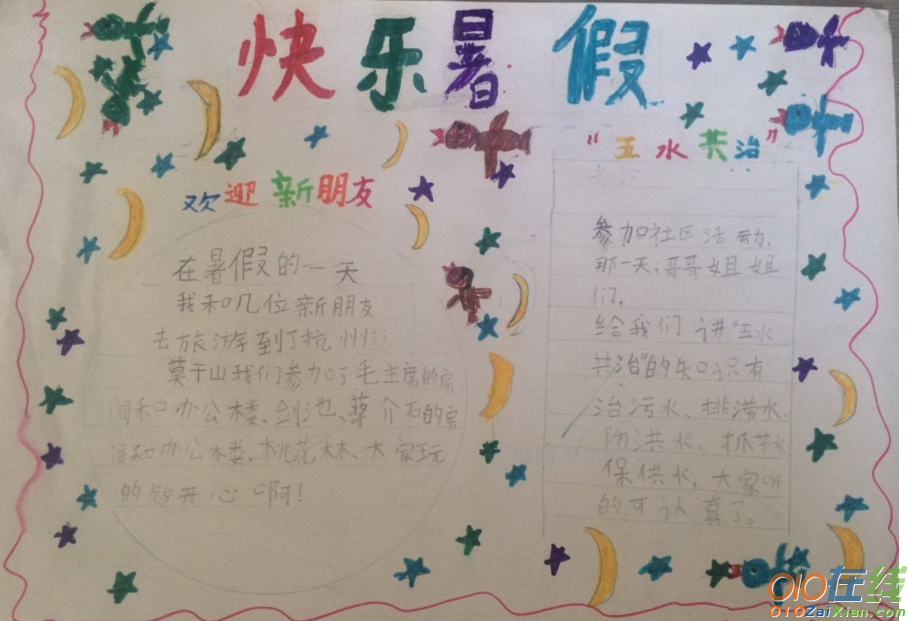 快乐暑假
欢迎新朋友
在暑假的一天
我和几位新朋友
去旅游到了杭州
莫干山我们参加了毛主席的房
间和办公楼、剑池、蒋介石的房
间和办公楼、桃花林、大家玩
的够开心啊!
“五水共治”
参加社区活动,
那一天,哥哥姐姐
们,
给我们讲“五水
共治”的知识有
治污水、排涝水、
防洪水、抓节水
保供水,大家听
的可认真了。
010在线
010ZaiXian.com